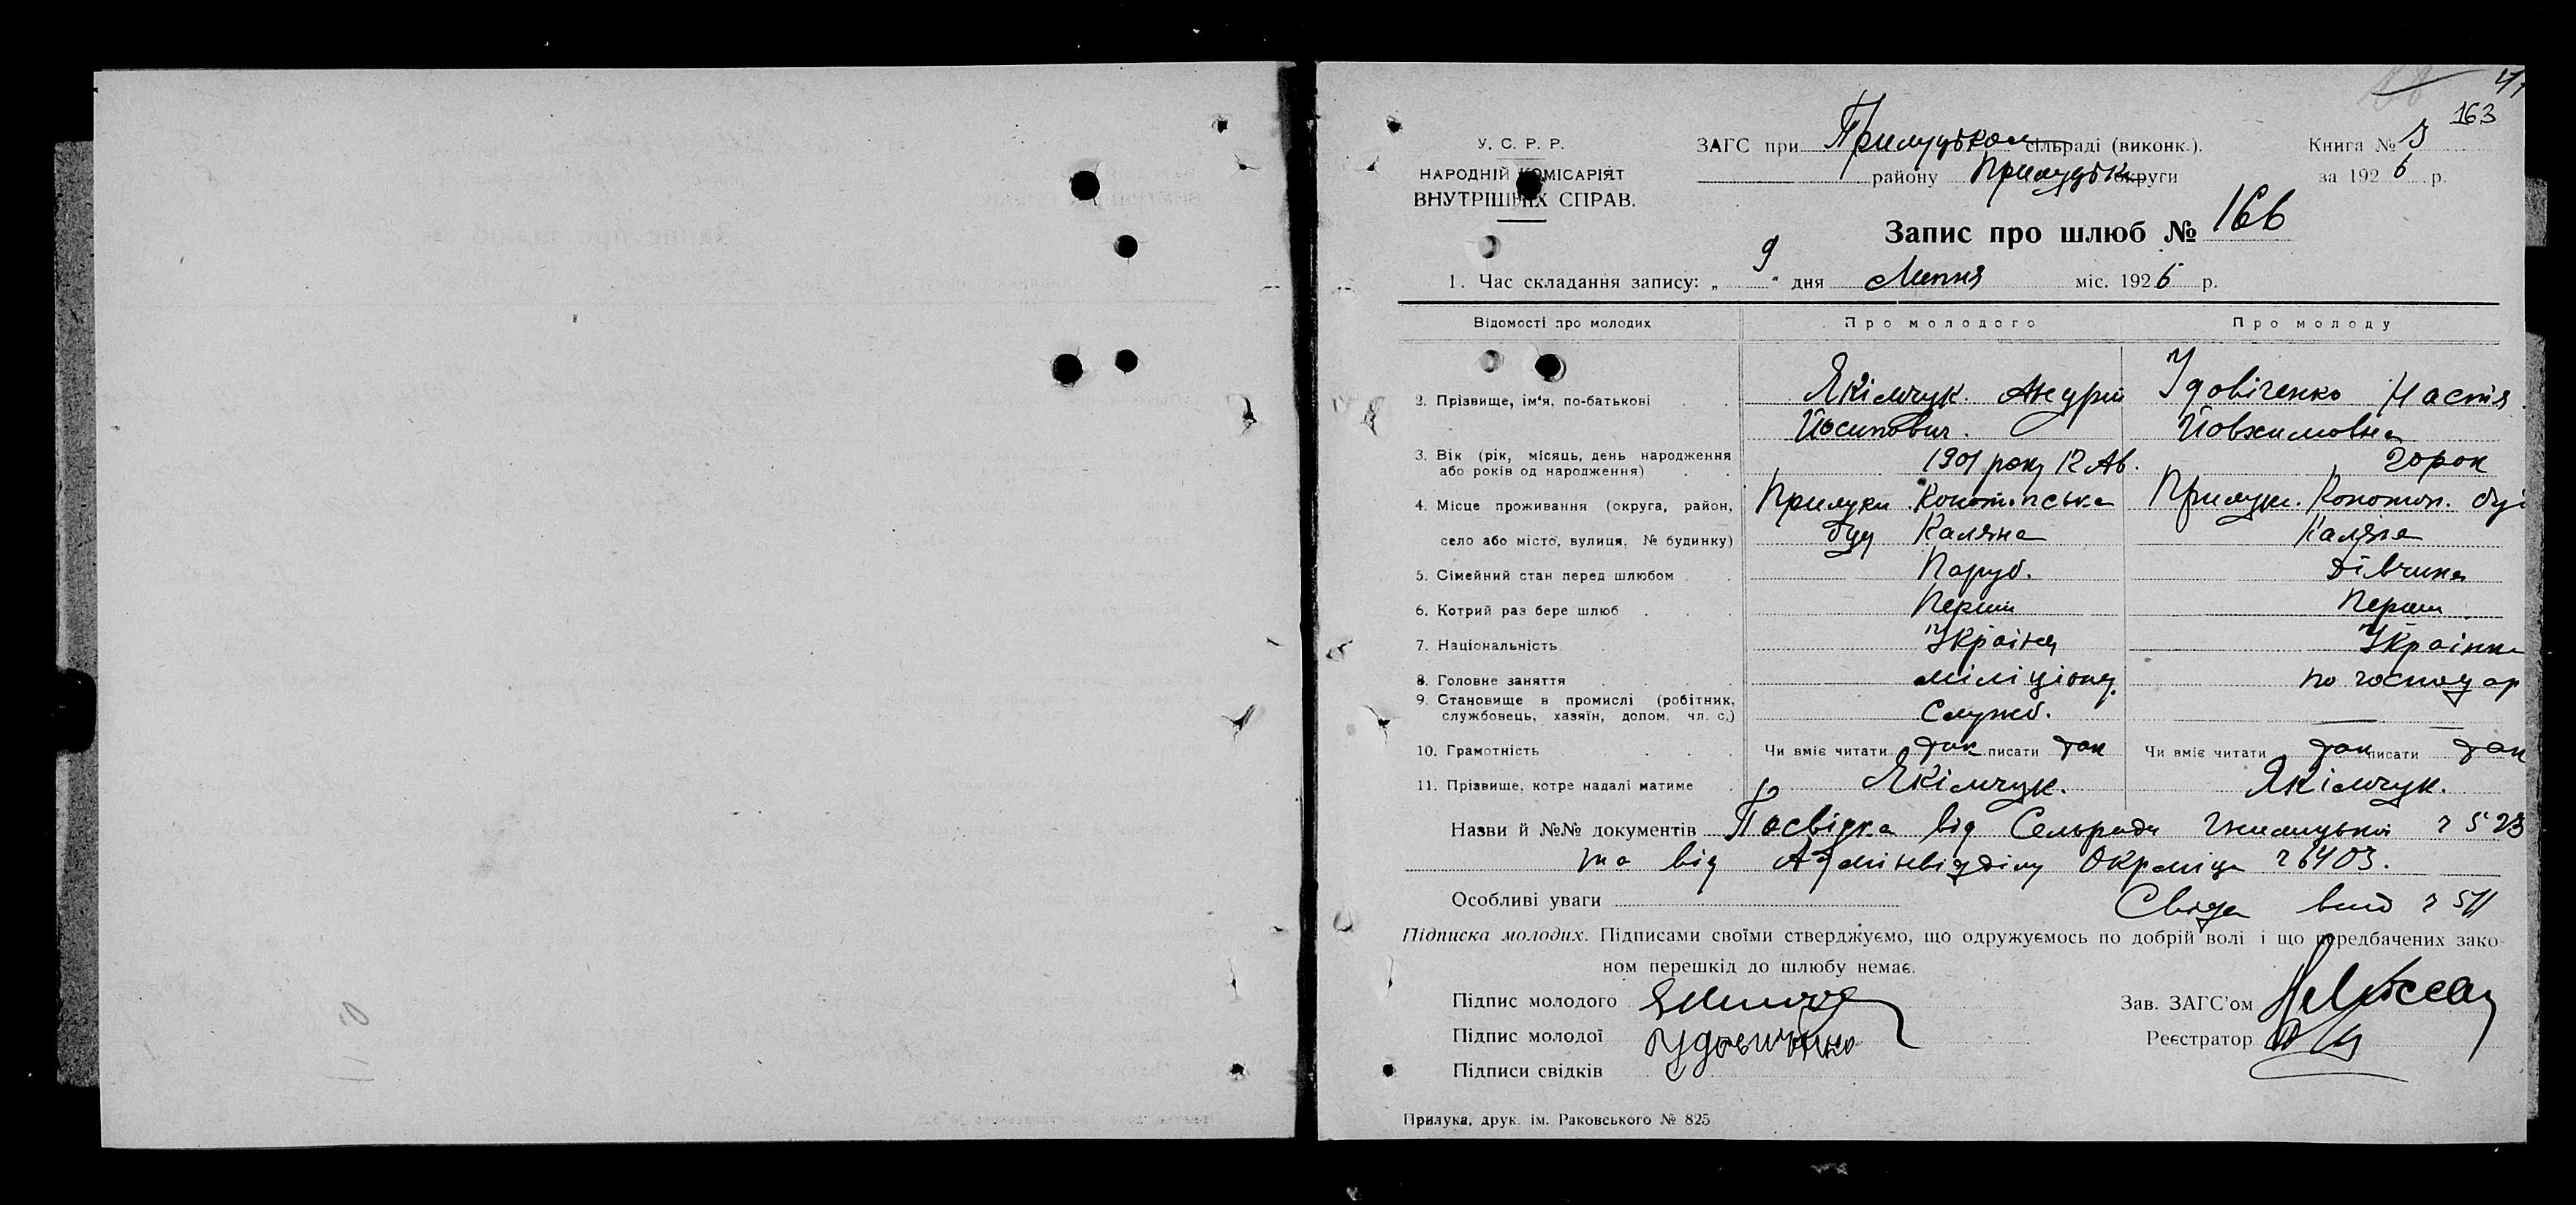 163
У. С. Р. Р.
НАРОДНІЙ КОМІСАРІЯТ
ВНУТРІШНІХ СПРАВ.
ЗАГС при Прилуцьком сільраді (виконк.).
району Прилуцьк округи
Книга № 3
за 1926 р.
Запис про шлюб № 166
1. Час складання запису: „ 9 " дня Липня міс. 1926 р.
Відомості про молодих Про молодого Про молоду
2. Прізвище, ім'я, по-батькові Якімчук Йосипович. Удовіченко Настя Йовхимовна
3. Вік (рік, місяць, день народження або років од народження) 1901 року 12 Ав. 20 рок
4. Місце проживання (округа, район, село або місто, вулиця, № будинку) Прилуки Конотопська буд Каляна Прилуки. Конотоп. буд Каляна
5. Сімейний стан перед шлюбом Паруб. Дівчина
6. Котрий раз бере шлюб Перший Перший
7. Національність Українец Українка
8. Головне заняття міліціонер по господар
9. Становище в промислі (робітник, службовець, хазяїн, допом. чл. с.) Служб. —
10. Грамотність Чи вміє читати так писати так Чи вміє читати так писати так
11. Прізвище, котре надалі матиме Якімчук. Якімчук.
Назви й №№ документів Посвідка від Сельради 523
та від Адмінвідділу Окрміліц 6403.
Особливі уваги Свідоц вид 511
Підписка молодих. Підписами своїми стверджуємо, що одружуємось по добрій волі і що передбачених зако-
ном перешкід до шлюбу немає.
Підпис молодого
Зав. ЗАГС'ом
Підпис молодої Удовиченко
Реєстратор
Підписи свідків
Прилука, друк. ім. Раковського № 825